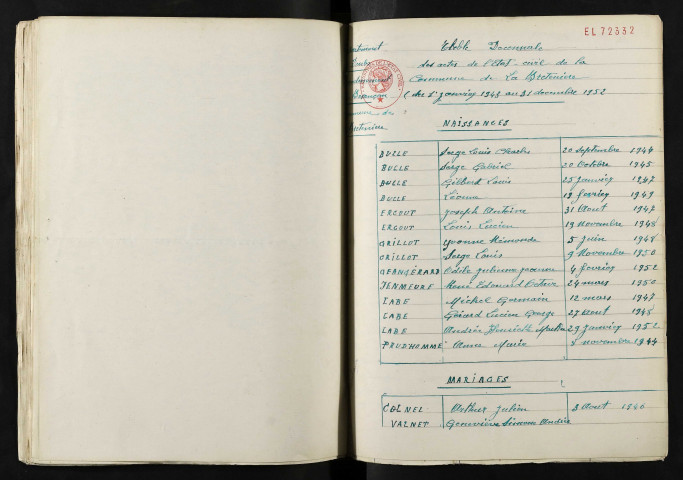 EL 72332
Table Decennale
des actes de l'Etat-civil de la
Commune de La Bretenière
( du 1er janvier 1943 au 31 decembre 1952
NAISSANCES
BULLE Serge Louis Charles 20 Septembre 1944
BULLE Serge Gabriel 20 Octobre 1945
BULLE Gilbert Louis 25 janvier 1947
BULLE 12 fevrier 1949
ERCOUT Joseph Antoine 31 Aout 1947
ERCOUT Louis Lucien 19 Novembre 1948
GRILLOT Yvonne Rémonde 5 Juin 1948
GRILLOT Serge Louis 9 Novembre 1950
JEANGÉRARD Odile Jeanne 4 fevrier 1952
JENMEURE René Edouard 24 mars 1950
LABE Michel Germain 12 mars 1947
LABE Gérard Lucien George 27 Aout 1948
LABE Andrée Henriette 29 janvier 1952
PRUD'HOMME Marie novembre 1944
MARIAGES
COLNEL Arthur Julien 3 Aout 1946
VALNET Geneviève Simone Andrée